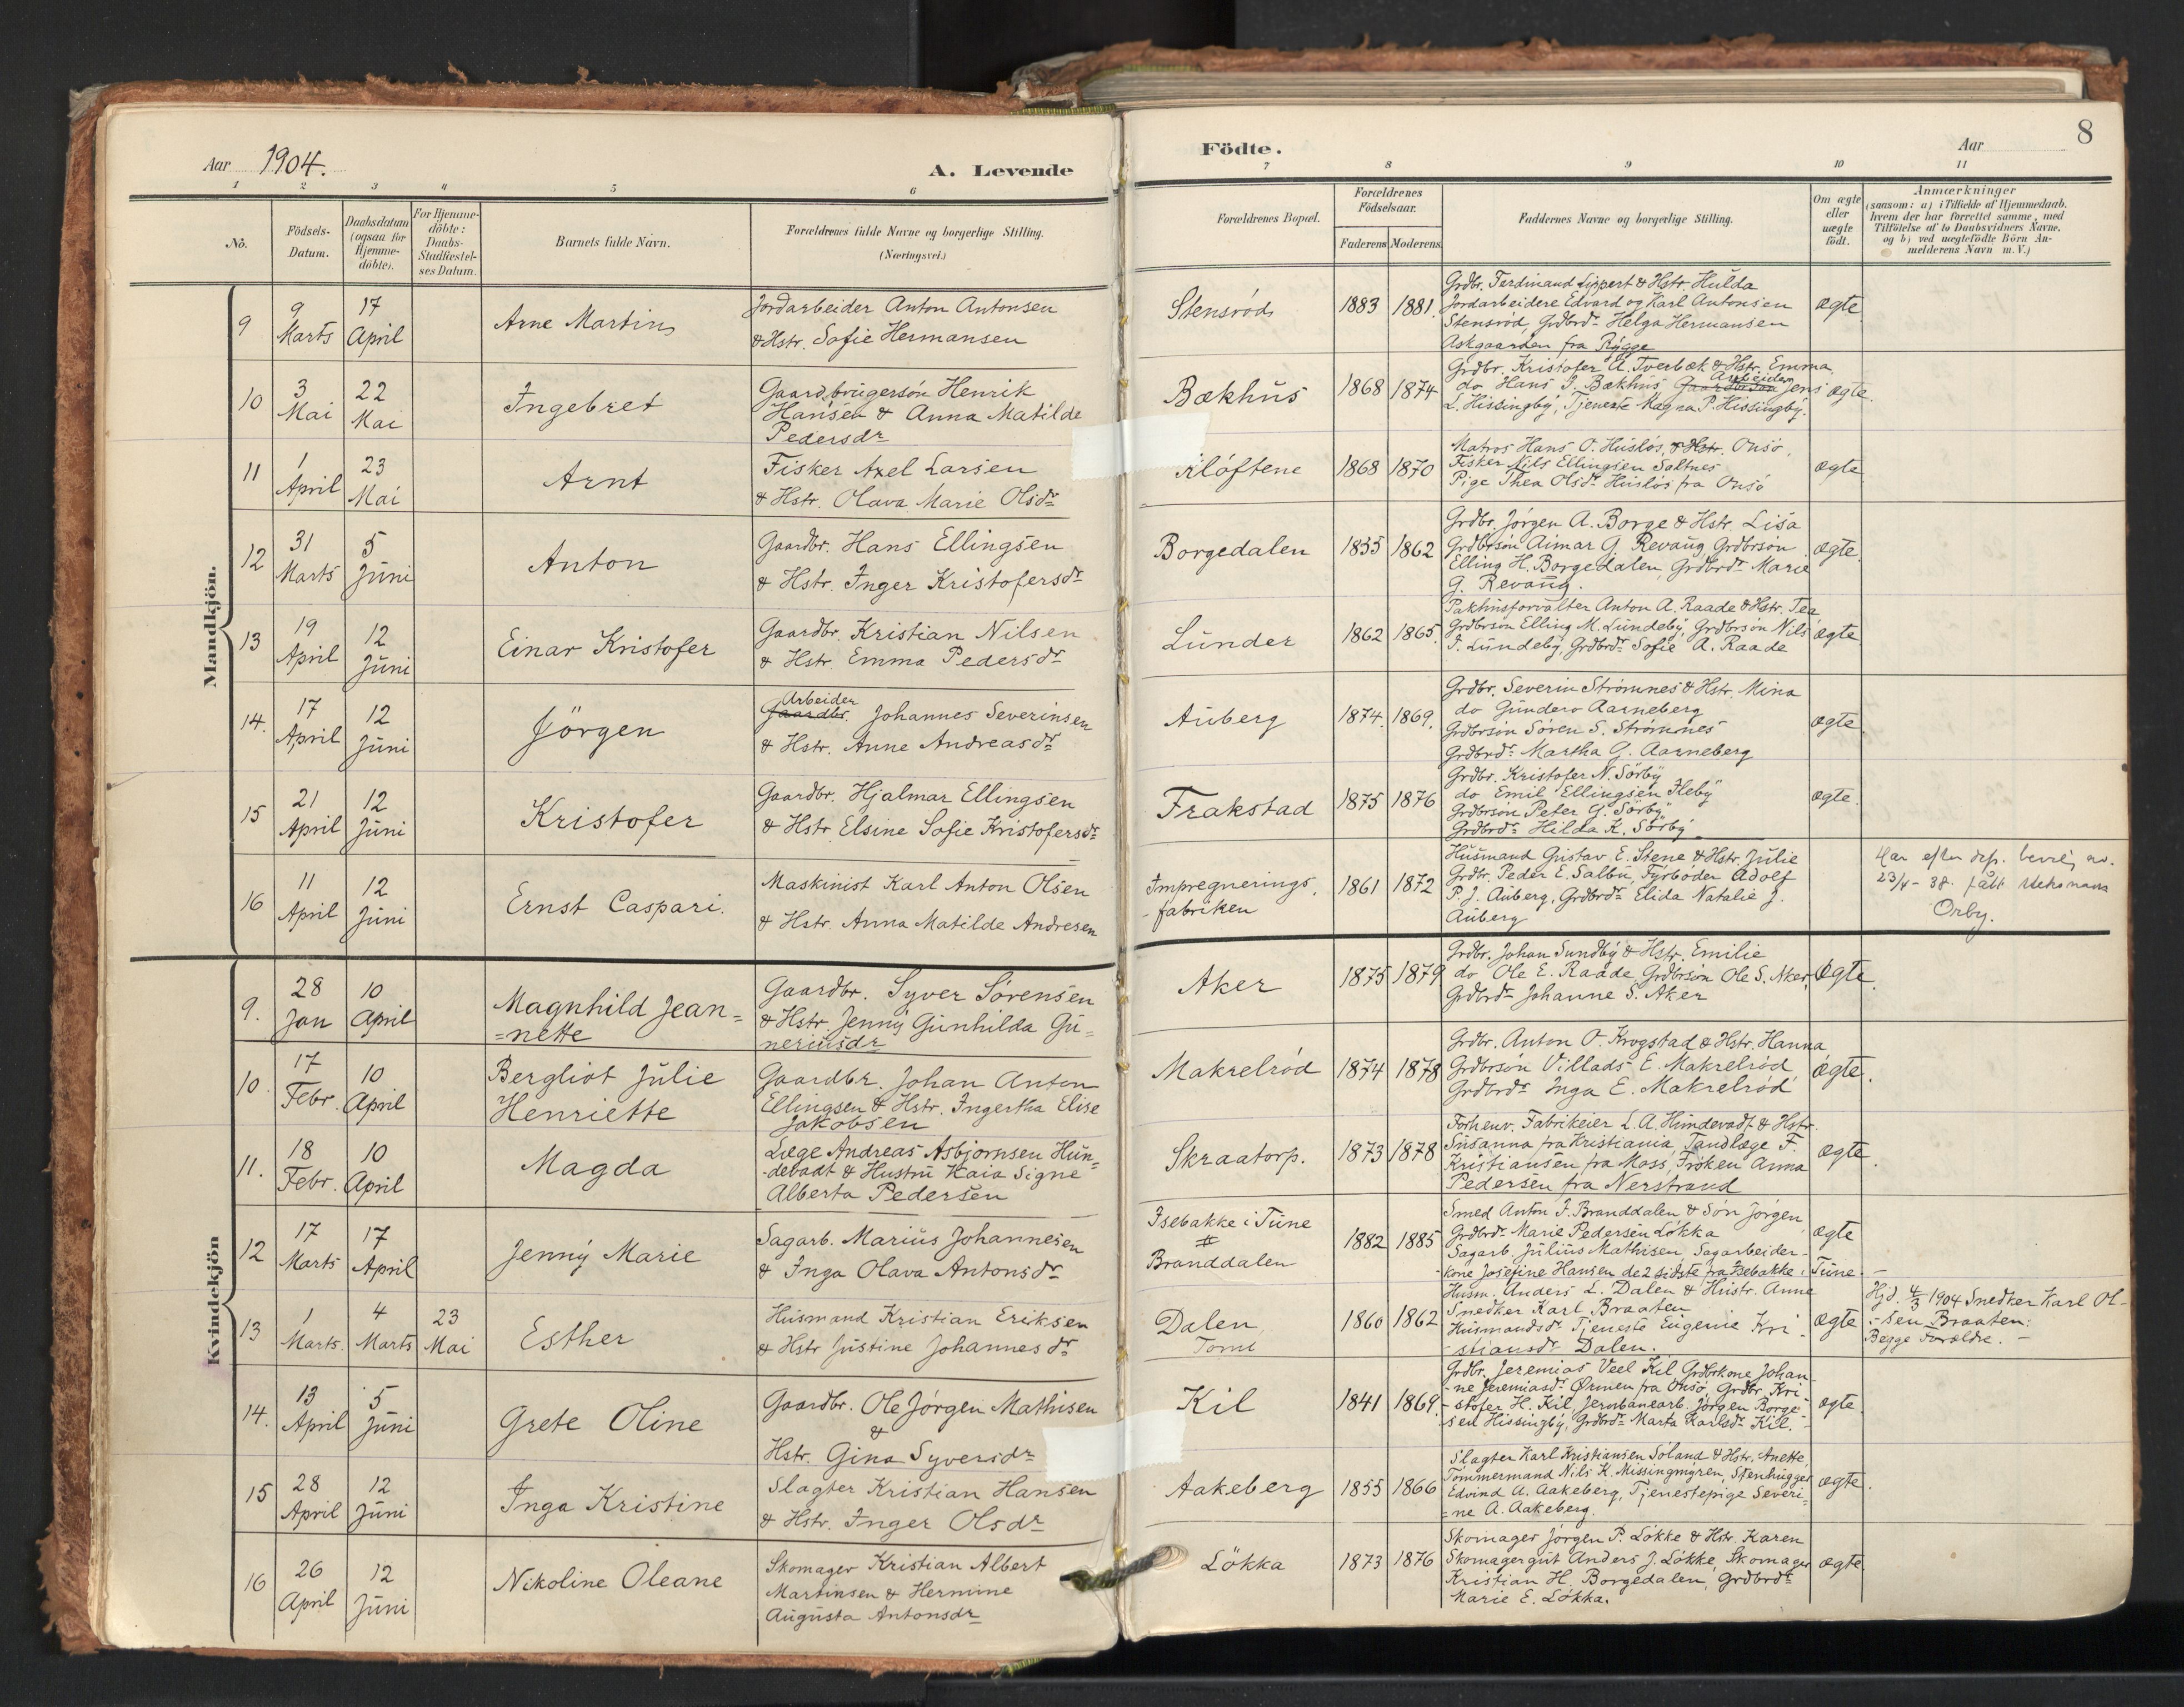 Aar 1904.
A. Levende
Födte.
Aar
8
1 2 3 4 5 6 7 8 9 10 11
No.
Födsels-
Datum.
Daabsdatum
(ogsaa for
Hjemme-
döbte).
For Hjemme-
döbte:
Daabs-
Stadfæstel-
ses Datum.
Barnets fulde Navn.
Forældrenes fulde Navne og borgerlige Stilling.
(Næringsvei.)
Forældrenes Bopæl.
Forældrenes
Födselsaar.
Faderens Moderens
Faddernes Navne og borgerlige Stilling.
Om ægte
eller
uægte
födt.
Anmærkninger
(saasom: a) i Tilfælde af Hjemmedaab,
hvem der har forrettet samme, med
Tilföielse af to Daabsvidners Navne,
og b) ved uægtefödte Börn An-
melderens Navn m.V.)
Mandkjön.
9
9 Marts
17 April
Arne Martin
Jordarbeider Anton Antonsen
& Hstr. Sofie Hermansen
Stensröd
1883 1881.
Grdbr. Ferdinand Lippert & Hstr. Hulda
Jordarbeidere Edvard og Karl Antonsen
Stensröd, Grdbrdr Helga Hermansen
Askgaarden fra Rygge
ægte
10
3 Mai
22 Mai
Ingebret
Gaardbrugersön Henrik
Hansen & Anna Matilde
Pedersdr
Bækhus
1868 1874
Grdbr. Kristofer A. Tverbæk & Hstr. Emma
Arbeider
do Hans J. Bækhus Gaardbrsön Jens
L. Hissingby, Tjeneste Magna P. Hissingby.
ægte.
11
1 April
23 Mai
Arnt
Fisker Axel Larsen
& Hstr. Olava Marie Olsdr
Klöftene
1868 1870
Matros Hans O. Huslös & Hstr. Onsö,
Fisker Nils Ellingsen Saltnes
Pige Thea Olsdr Huslös fra Onsö
ægte
12
31 Marts
5 Juni
Anton
Gaardbr. Hans Ellingsen
& Hstr. Inger Kristofersdr
Borgedalen
1855 1862
Grdbr. Jörgen A. Borge & Hstr. Lisa
Grdbrsön Aimar G. Revaug, Grdbrsön
Elling H. Borgedalen, Grdbrdr Marie
G. Revaug.
ægte
13
19 April
12 Juni
Einar Kristofer
Gaardbr. Kristian Nilsen
& Hstr. Emma Pedersdr
Lunder
1862 1865.
Pakhusforvalter Anton A. Raade & Hstr. Tea
Grdbrsön Elling M. Lundeby, Grdbrsön Nils
J. Lundeby, Grdbrdr Sofie A. Raade
ægte
14.
17 April
12 Juni
Jörgen
Arbeider
Gaardbr. Johannes Severinsen
& Hstr. Anne Andreasdr
Auberg
1874. 1869.
Grdbr. Severin Strömnes & Hstr. Mina
do Gunder Aarneberg
Grdbrsön Sören S. Strömnes
Grdbrdr Martha G. Aarneberg
ægte
15
21 April
12 Juni
Kristofer
Gaardbr. Hjalmar Ellingsen
& Hstr Elsine Sofie Kristofersdr
Frakstad
1875 1876
Grdbr. Kristofer N. Sörby
do Emil Ellingsen Heby
Grdbrsön Peter G. Sörby
Grdbrdr Hilda K. Sörby
ægte.
16
11 April
12 Juni
Ernst Caspari.
Maskinist Karl Anton Olsen
& Hstr. Anna Matilde Andresen
Impregnerings-
-fabriken
1861 1872
Husmand Gustav E. Stene & Hstr. Julie
Grdbr. Peder E. Salbu, Fyrböder Adolf
P. J. Auberg, Grdbrdr Elida Natalie J.
Auberg
Har efter dep. bevilg. av.
23/4-38. fått slektsnavn
Orby.
Kvindekjön
9.
28 Jan
10 April
Magnhild Jean=
=nette
Gaardbr. Syver Sörensen
& Hstr. Jenny Gunhilda Gu=
neriusdr
Aker
1875 1879
Grdbr. Johan Sundby & Hstr. Emilie
do Ole E. Raade, Grdbrsön Ole S. Aker,
Grdbrdr Johanne S. Aker
Ægte
10.
17 Febr.
10 April
Bergliot Julie
Henriette
Gaardbr. Johan Anton
Ellingsen & Hstr. Ingertha Elise
Jakobsen
Makrelröd
1874 1878
Grdbr. Anton O. Krogstad & Hstr. Hanna
Grdbrsön Villads E. Makrelröd
Grdbrdr Inga E. Makrelröd
ægte.
11.
18 Febr.
10 April
Magda
Læge Andreas Asbjörnsen Hun=
-devadt & Hustru Kaia Signe
Alberta Pedersen
Skraatorp.
1873 1878
Forhenv. Fabrikeier L. A. Hundevadt & Hstr.
Susanna fra Kristiania, Tandlæge F.
Kristiansen fra Moss, Fröken Anna
Pedersen fra Nerstrand
ægte
12
17 Marts
17 April
Jenny Marie
Sagarb. Marius Johannesen
& Inga Olava Antonsdr
Isebakke i Tune
Branddalen
1882 1885
Smed Anton J. Branddalen & Sön Jörgen
Grdbrdr Marie Pedersen Lökka
Sagarb. Julius Mathisen, Sagarbeider-
kone Josefine Hansen de 2 sidste fra Isebakke i Tune.
ægte
13
1 Marts.
4 Marts
23 Mai
Esther
Husmand Kristian Eriksen
& Hstr Justine Johannesdr
Dalen
Tomt
1860 1862
Husm. Anders L. Dalen & Hustr. Anne
Snedker Karl Braaten
Husmandsdr Tjeneste Eugenie Kri-
stiansdr Dalen.
ægte
Hjd. 4/3 1904 Snedker Karl Ol-
-sen Braaten.
Begge Forældre. -
14.
13 April
5 Juni
Grete Oline
Gaardbr. Ole Jörgen Mathisen
&
Hstr. Gina Syversdr
Kil
1841 1869
Grdbr. Jeremias Veel Kil Grdbrkone Johan-
-ne Jeremiasdr Örmen fra Onsö, Grdbr. Kri-
-stofer H. Kil, Jernbanearb. Jörgen Borge-
sen Hissingby, Grdbrdr Marta Karlsdr Kil.
ægte
15
28 April
12 Juni
Inga Kristine
Slagter Kristian Hansen
& Hstr. Inger Olsdr
Aakeberg
1855 1866
Slagter Karl Kristiansen Soland & Hstr. Anette,
Tömmermand Nils K. Missingmyren, Stenhugger
Edvind A. Aakeberg, Tjenestepige Severi=
=ne A. Aakeberg.
ægte.
16
26 April
12 Juni
Nikoline Oleane
Skomager Kristian Albert
Martinsen & Hermine
Augusta Antonsdr
Lökka
1873 1876
Skomager Jörgen P. Lökke & Hstr. Karen
Skomagergut Anders J. Lökke, Skomager
Kristian H. Borgedalen, Grdbrdr
Marie E. Lökka.
ægte